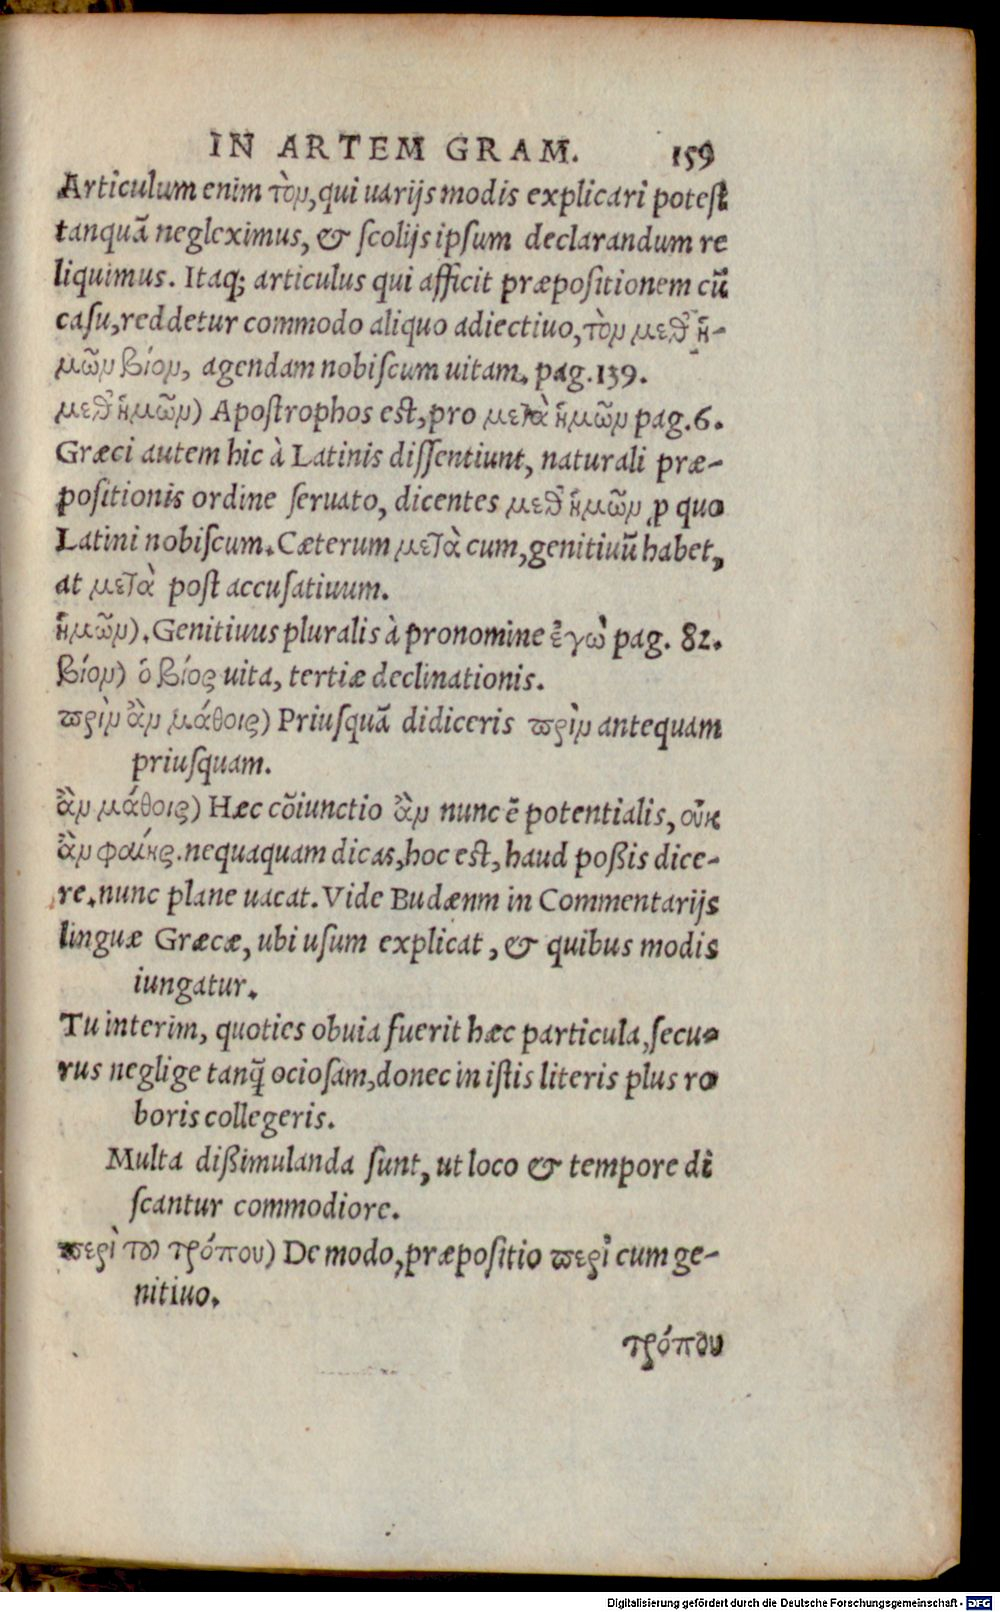 IN ARTEM GRAM. 159
Articulum enim τὸν, qui uarijs modis explicari potest
tanquā negleximus, & scolijs ipsum declarandum re
liquimus. Itaq; articulus qui afficit præpositionem cū
casu, reddetur commodo aliquo adiectiuo, τὸν μεθ᾽ ἡ-
μῶν βίον, agendam nobiscum uitam. pag. 139.
μεθ᾽ ἡμῶν) Apostrophos est, pro μετὰ ἡμῶν pag. 6.
Græci autem hic à Latinis dissentiunt, naturali præ-
positionis ordine seruato, dicentes μεθ᾽ ἡμῶν ꝓ quo
Latini nobiscum. Cæterum μετὰ cum, genitiuū habet,
at μετὰ post accusatiuum.
ἡμῶν). Genitiuus pluralis à pronomine ἐγὼ pag. 82.
βίον) ὁ βίος uita, tertiæ declinationis.
πρὶν ἂν μάθοις) Priusquā didiceris πρὶν antequam
priusquam.
ἂν μάθοις) Hæc cōiunctio ἂν nunc ē potentialis, οὐκ
ἂν φαίης. nequaquam dicas, hoc est, haud poßis dice-
re. nunc plane uacat. Vide Budænm in Commentarijs
linguæ Græcæ, ubi usum explicat, & quibus modis
iungatur.
Tu interim, quoties obuia fuerit hæc particula, secu-
rus neglige tanq̃ ociosam, donec in istis literis plus ro
boris collegeris.
Multa dißimulanda sunt, ut loco & tempore di
scantur commodiore.
περὶ τοῦ τρόπου) De modo, præpositio περὶ cum ge-
nitiuo.
τρόπου
Digitalisierung gefördert durch die Deutsche Forschungsgemeinschaft - DFG